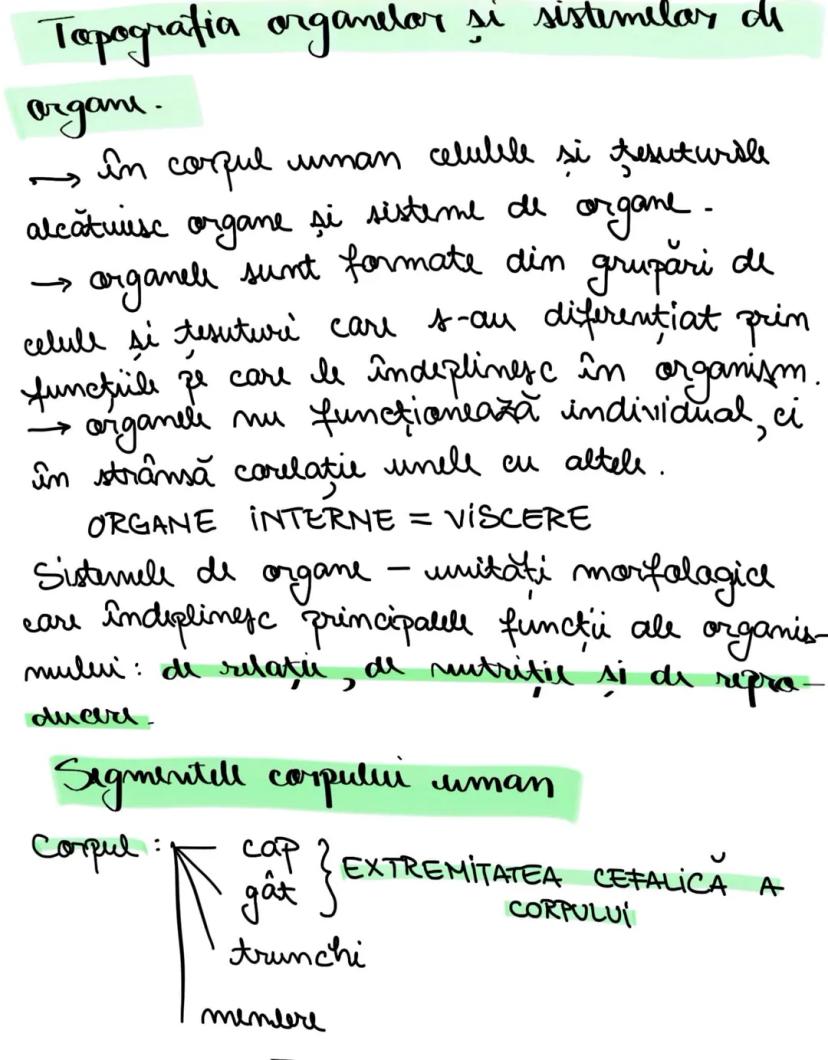 Topografia organelor și sistemelor de
organe.
→ în corpul uman celulele și țesuturile
alcătuiesc organe și sisteme de organe.
→ organele sunt formate din grupări de
celule și țesuturi care s-au diferențiat prin
funcțiile pe care le îndeplinesc în organism.
→ organele nu funcționează individual, ci
în strânsă corelație unele cu altele.
ORGANE INTERNE = VISCERE
Sistemele de organe – unități morfologice
care îndeplinesc principalele funcții ale organis-
mului: de relație, de nutriție și de repro-
ducere.
Segmentele corpului uman
Corpul: cap } EXTREMITATEA CEFALICĂ A
gât CORPULUI
trunchi
membre